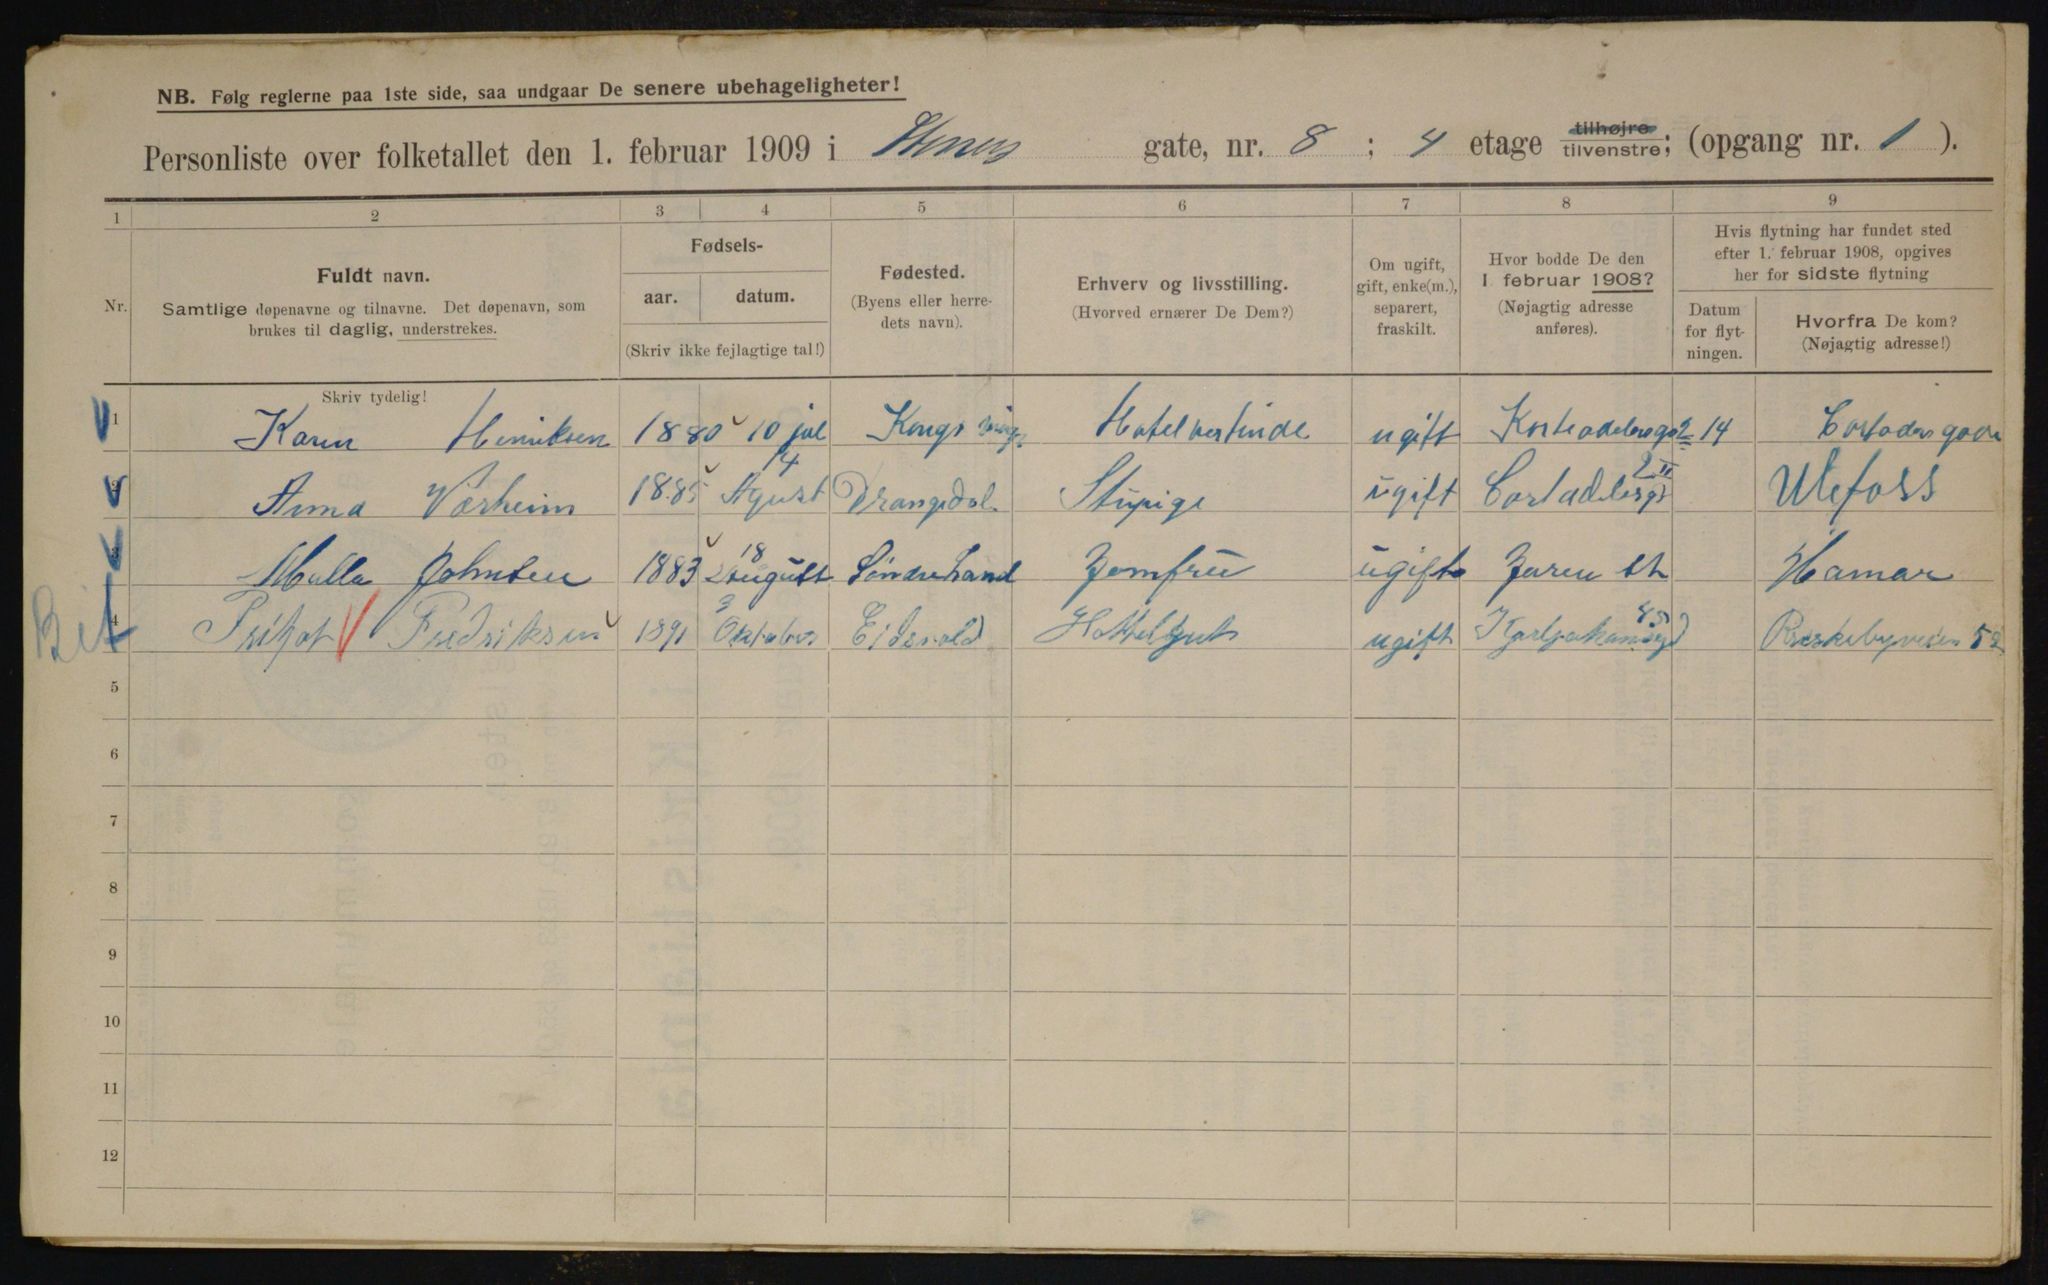 NB. Følg reglerne paa 1ste side, saa undgaar De senere ubehageligheter!
Personliste over folketallet den 1. februar 1909 i gate, nr. 8 ; 4 etage tilhøjre tilvenstre; (opgang nr. 1 ).
1 2 3 4 5 6 7 8 9
Nr.
Fuldt navn.
Samtlige døpenavne og tilnavne. Det døpenavn, som
brukes til daglig, understrekes.
Fødsels-
aar. datum.
(Skriv ikke fejlagtige tal!)
Fødested.
(Byens eller herre-
dets navn).
Erhverv og livsstilling.
(Hvorved ernærer De Dem?)
Om ugift,
gift, enke(m.),
separert,
fraskilt.
Hvor bodde De den
1 februar 1908?
(Nøjagtig adresse
anføres).
Hvis flytning har fundet sted
efter 1. februar 1908, opgives
her for sidste flytning
Datum
for flyt-
ningen.
Hvorfra De kom?
(Nøjagtig adresse!)
Skriv tydelig!
1 Karen Henriksen 1880 10 jul Kongsvinger Hotelvertinde ugift 14
2 Anna Værheim 1885 14 Agust Drangedal ugift Ulefoss
3 Malla Johnsen 1883 18 August Søndre Land Jomfru ugift Hamar
4 Fredriksen 1891 3 Oktober Eidsvold Hottelgut ugift 52
5
6
7
8
9
10
11
12